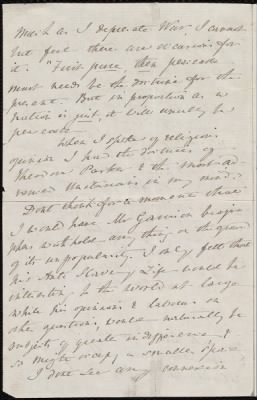 Much as I deprecate War, I cannot
but feel there are occasions for
it. "First pure, then peaceable
must needs be the doctrine for the
present. But in proportion as a
nation is just it will usually be
peaceable —
When I spoke of religious
opinions I had the doctrines of
Theodore Parker & the most ad-
vanced Unitarians in my mind.
Dont think for a moment that
I would have Mr Garrison's biogra-
phers withhold any thing on the ground
of its unpopularity. I only felt that
his Anti Slavery Life would be
interesting to the world at large
while his opinions & labours on
other questions, would naturally be
subjects of greater indifference &
so might occupy a smaller space
I dont see any connexion